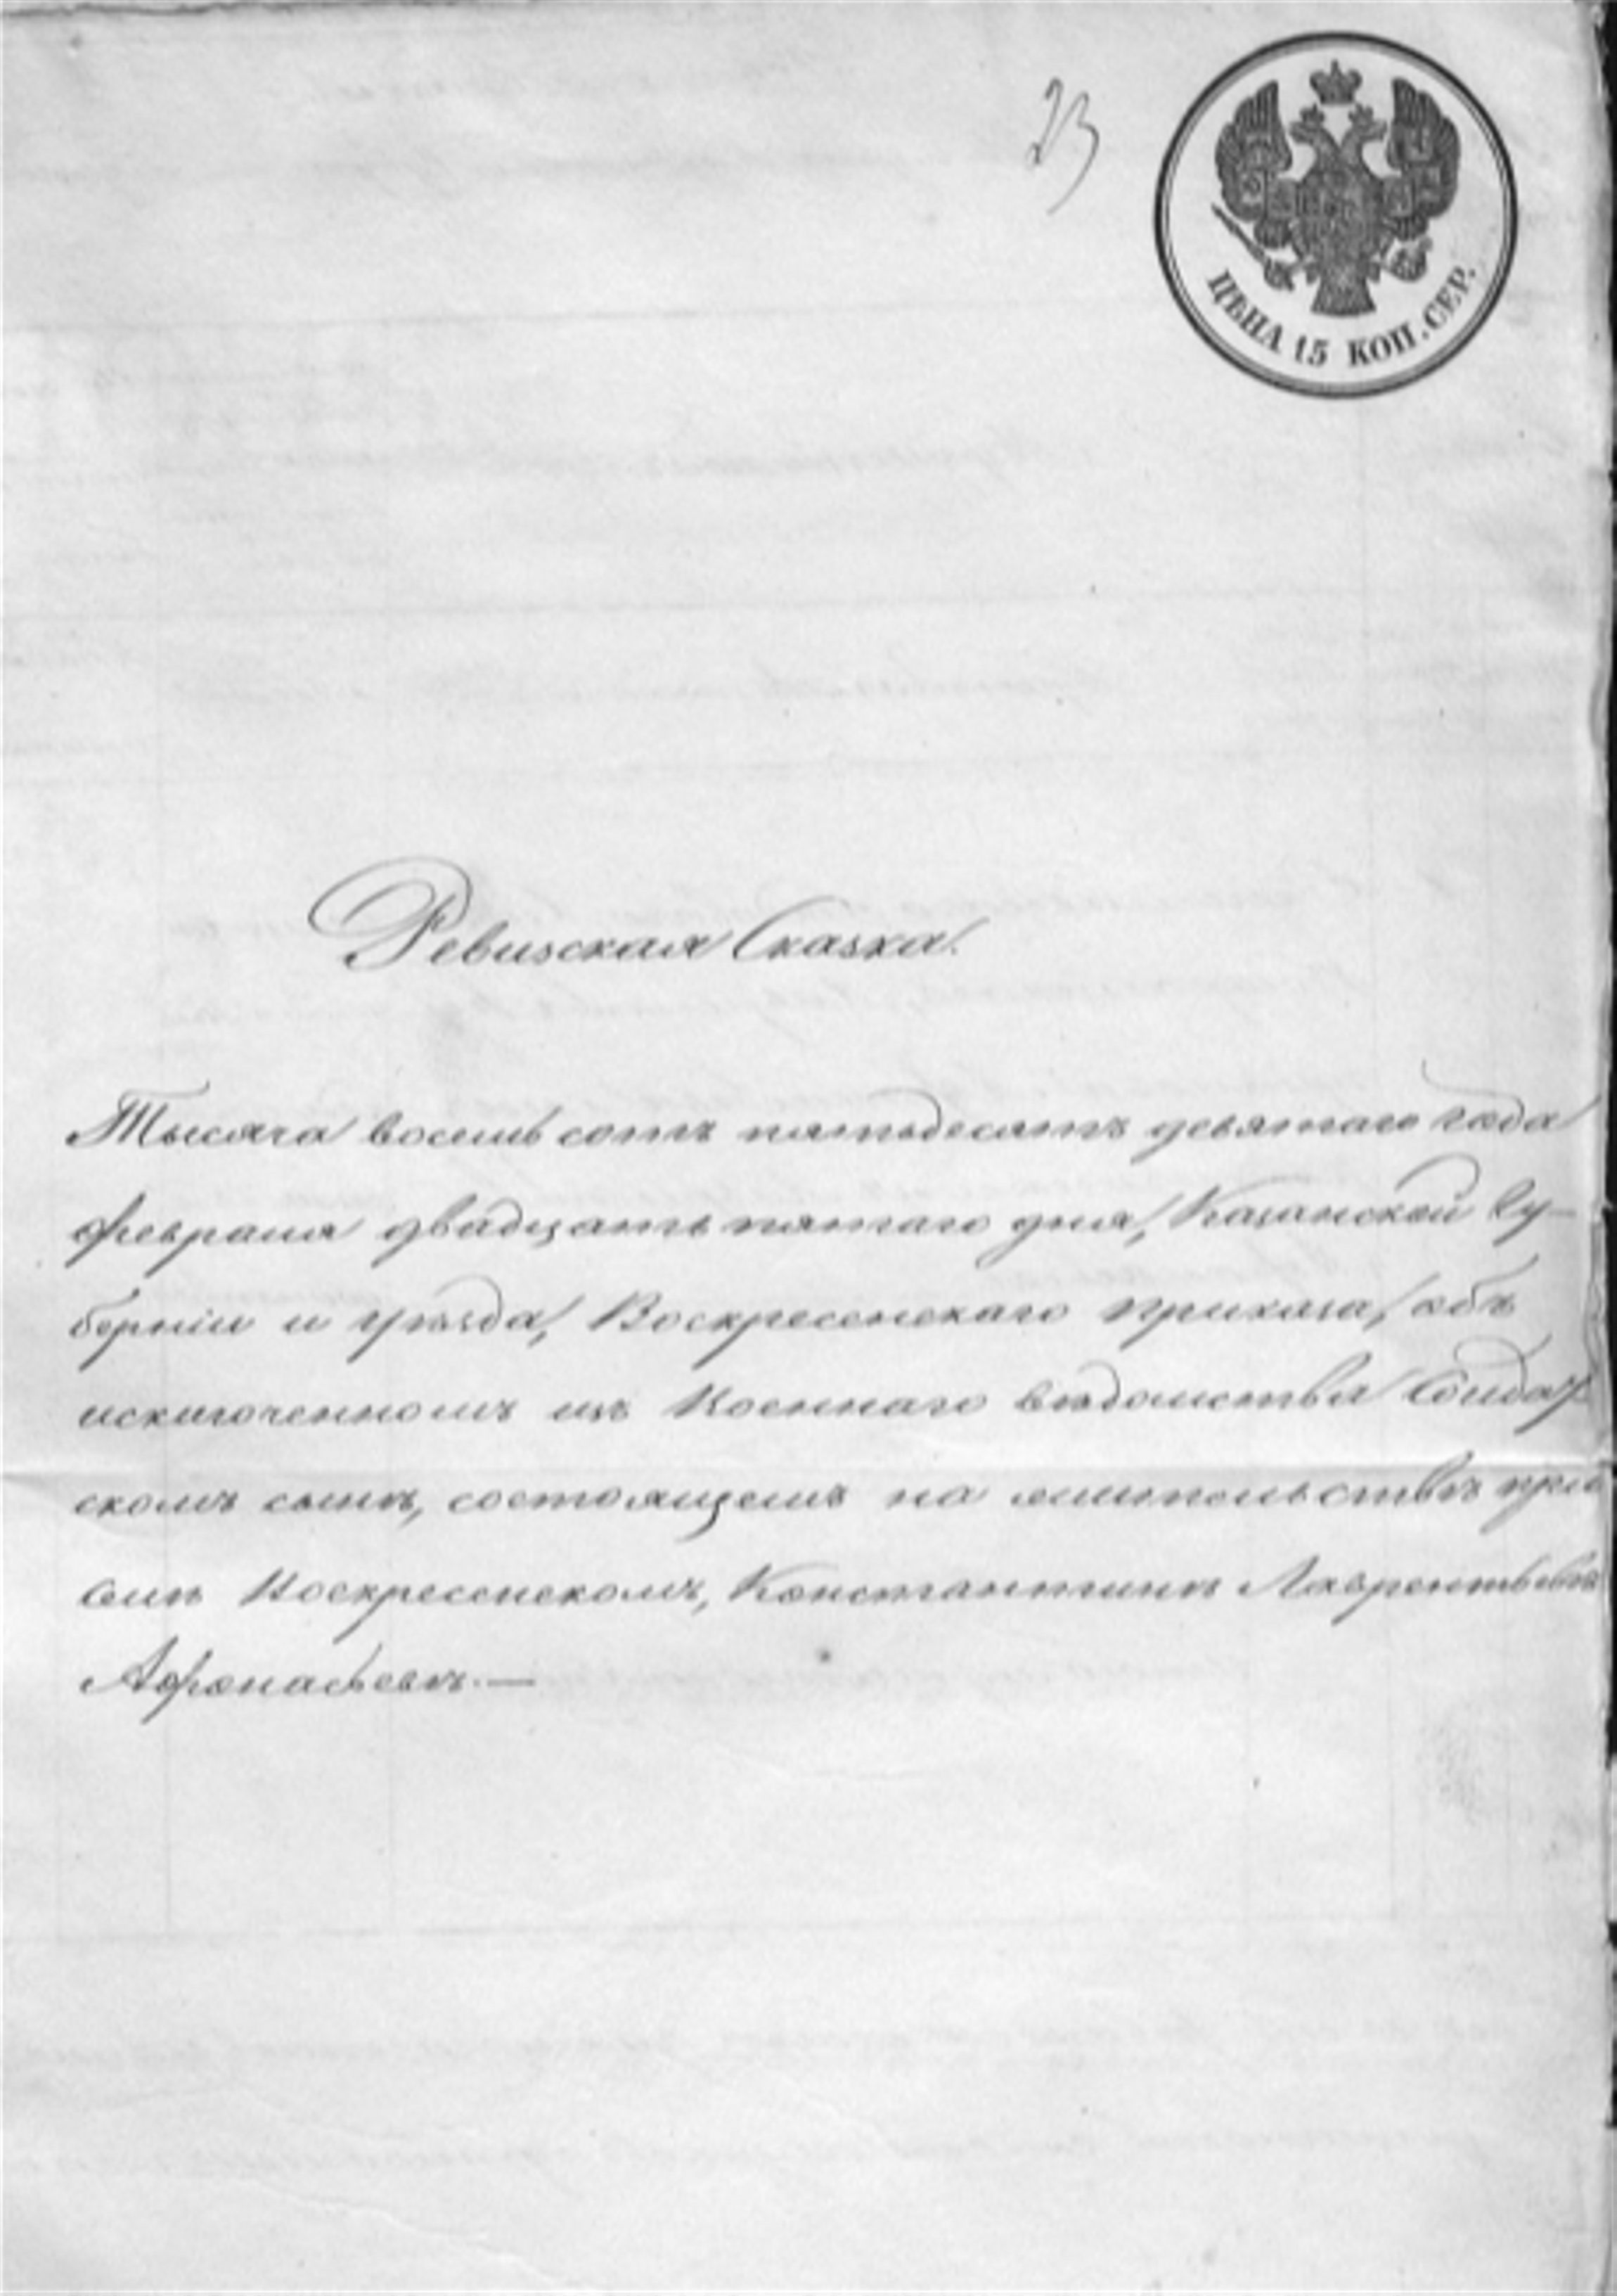 23
ЦѢНА 15 КОП. СЕР.
Ревизская Сказка.
Тысяча восемь сотъ пятьдесятъ девятаго года
февраля двадцать пятаго дня, Казанской Гу-
берніи и уѣзда, Воскресенскаго приказа, объ
исключенномъ изъ Военнаго вѣдомства Солдат
скомъ сынѣ, состоящемъ на жительствѣ при
селѣ Воскресенскомъ, Константинѣ Лаврентьевѣ
Афонасьевѣ.—